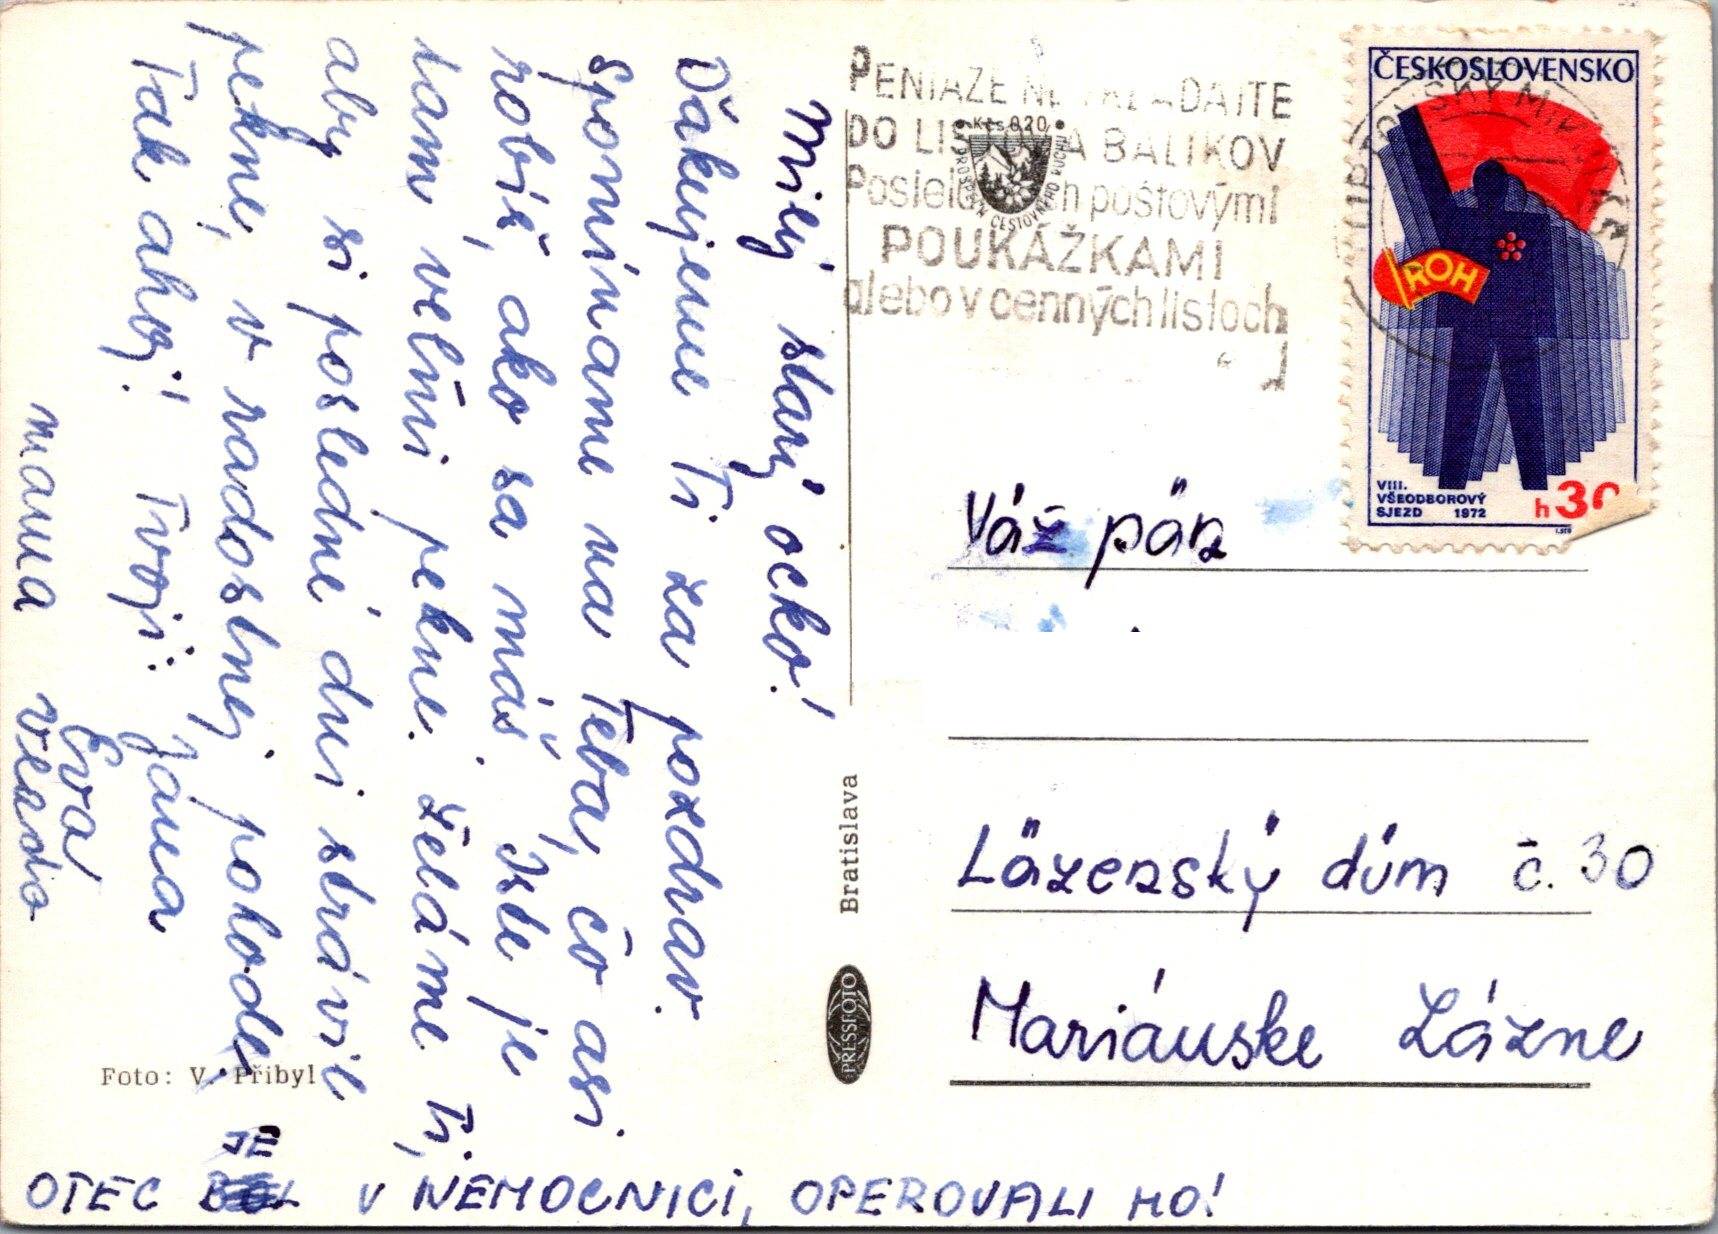 Milý starý ocko!
Ďakujeme Ti za pozdrav.
Spomíname na Teba, čo asi
robíš, ako sa máš. Iste je
tam veľmi pekne. Želáme Ti,
aby si posledné dni strávil
pekne, v radostnej pohode.
Tak ahoj! Tvoji: Jana
Eva
mama Vlado
OTEC JE V NEMOCNICI, OPEROVALI HO!
Foto: V. Přibyl
Bratislava
PRESSFOTO
PENIAZE NEVKLADAJTE
DO LISTOV A BALÍKOV
Posielajte ich poštovými
POUKÁŽKAMI
alebo v cenných listoch
Kčs 0,20
CESTOVNÉHO RUCHU
ČESKOSLOVENSKO
ROH
VIII.
VŠEODBOROVÝ
SJEZD 1972
h 30
Váž pán
Lázenský dům č. 30
Mariánske Lázne